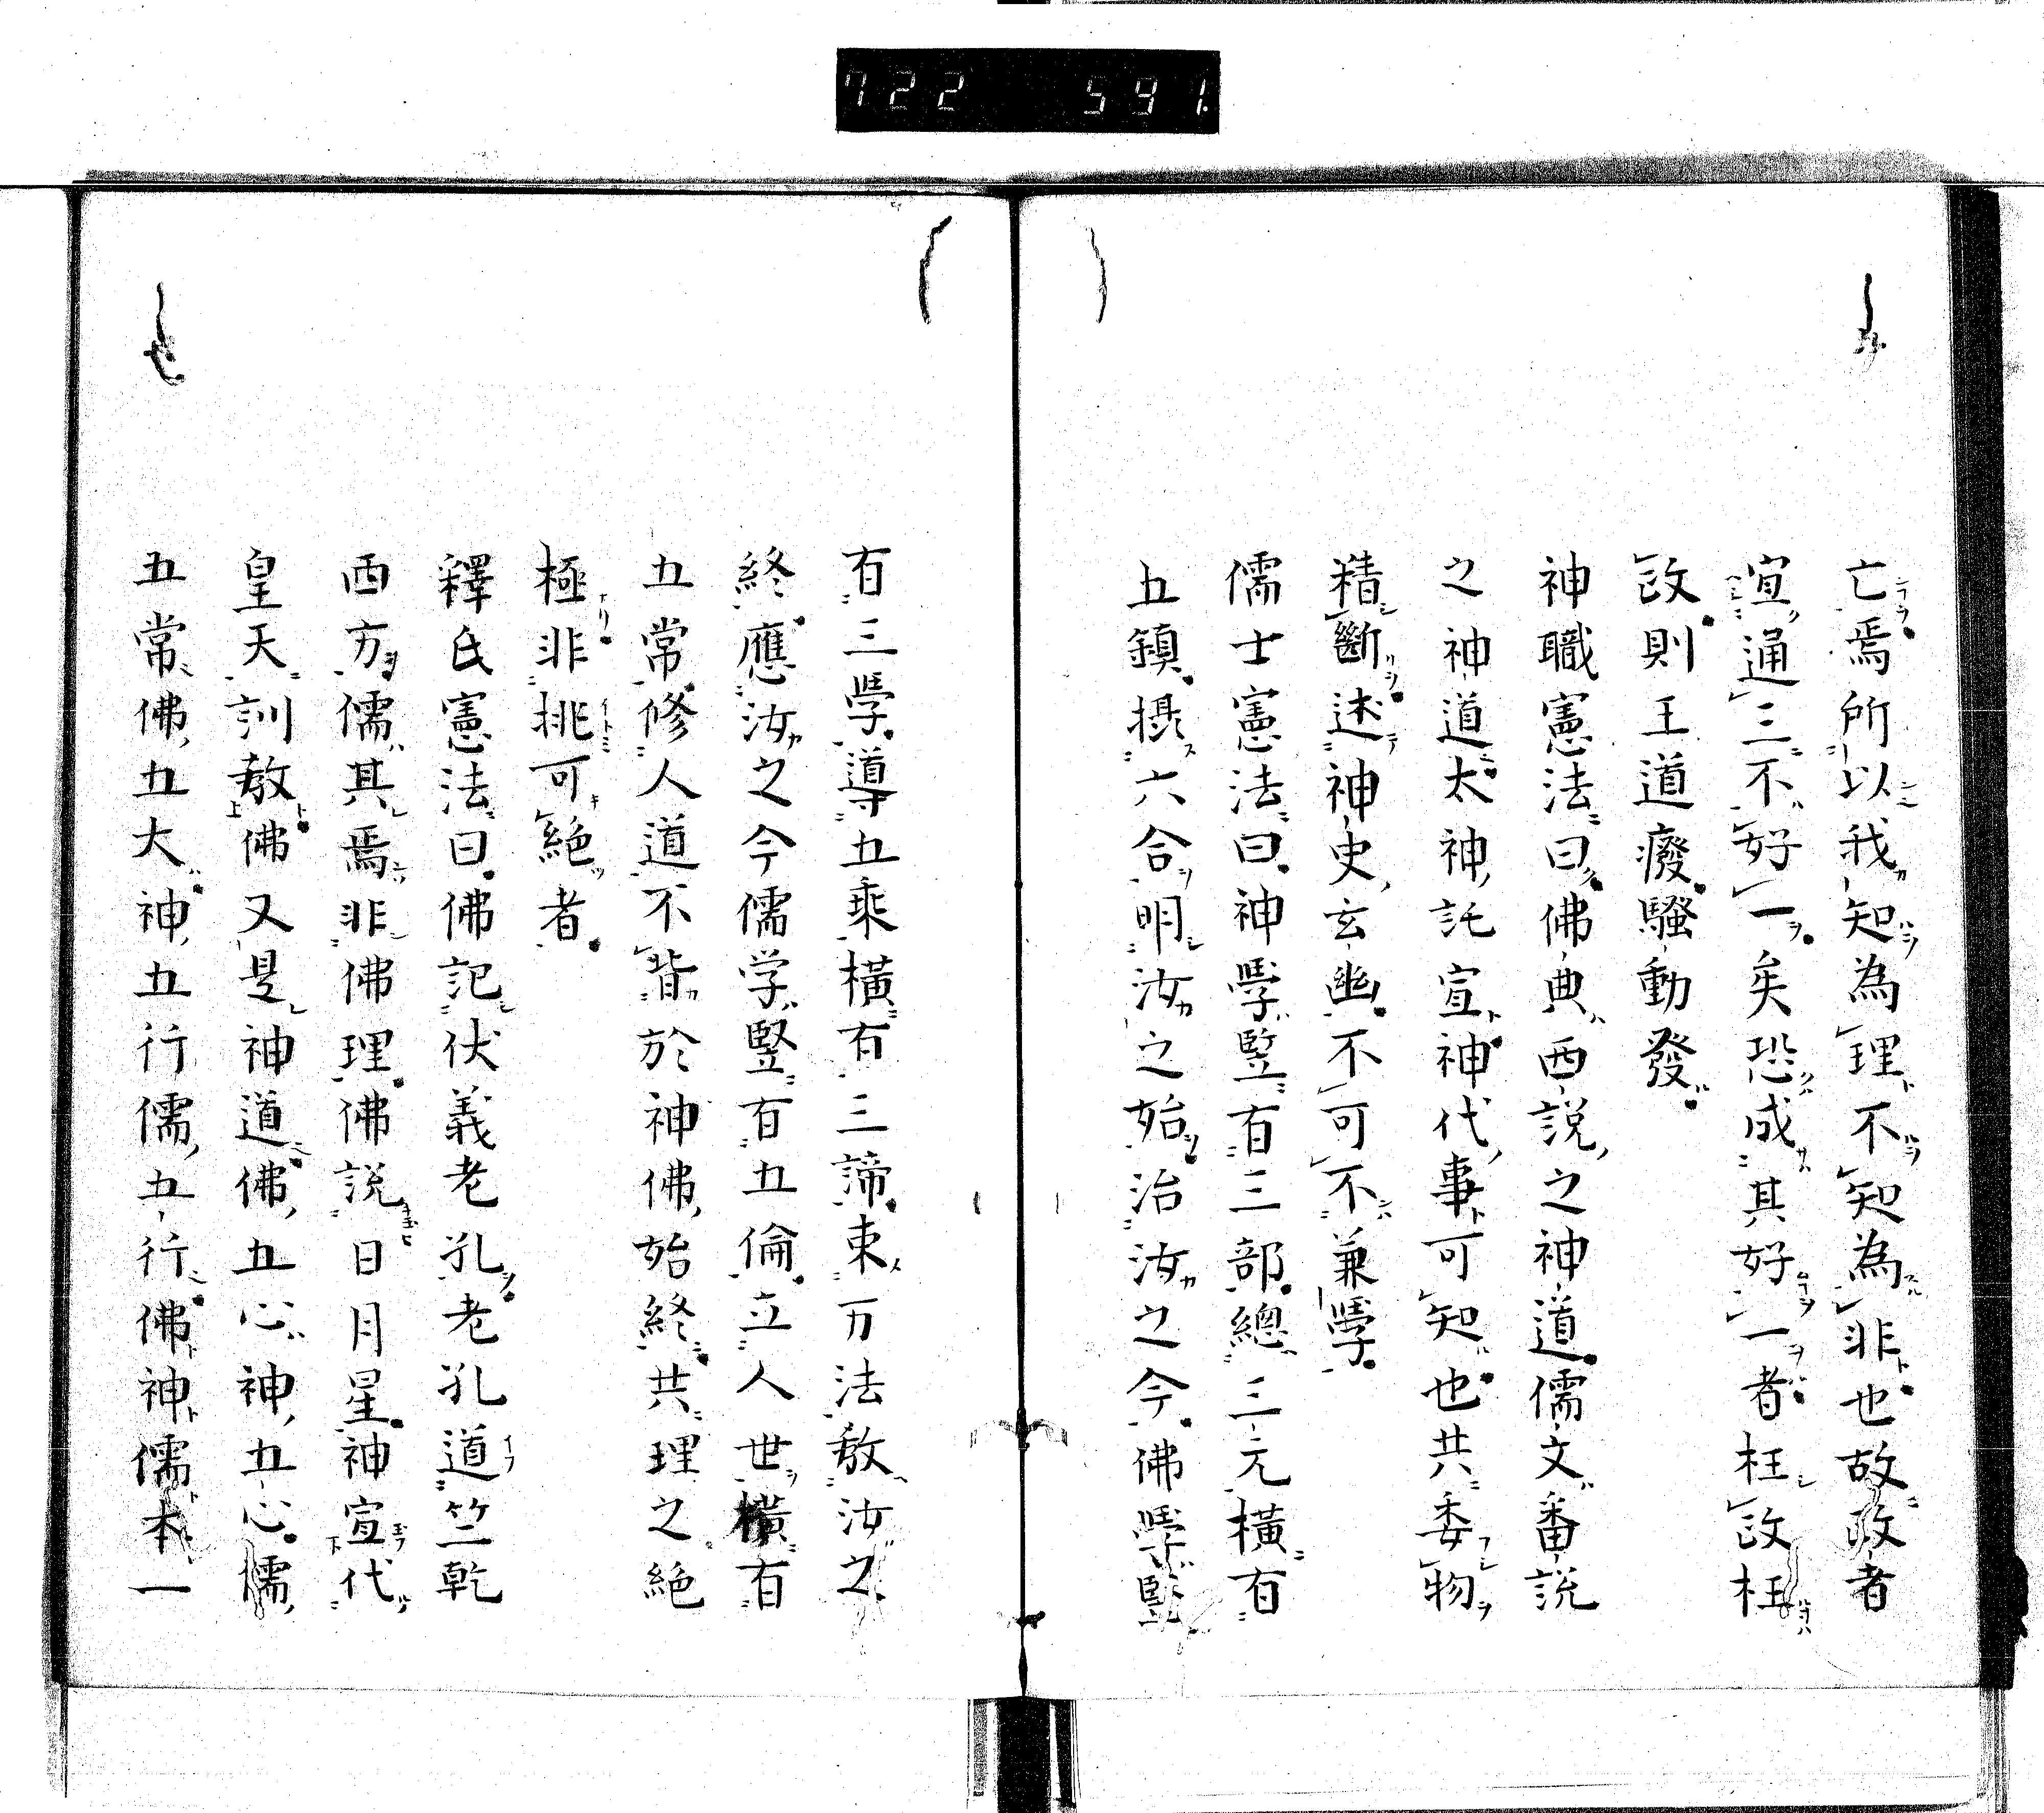 722 591.
亡焉所以我知為理不知為非也故政者
宜通三不好一矣恐成其好一者枉政枉
政則王道癈騷動發
神職憲法曰佛典西説之神道儒文番説
之神道太神託宣神代事可知也共委物
精斷述神史玄幽不可不兼學
儒士憲法曰神學竪有三部總三元横有
五鎮摂六合明汝之始治汝之今佛學竪
有三學導五乘横有三諦束万法敎汝之
終應汝之今儒学竪有五倫立人世横有
五常修人道不背於神佛始終共理之絶
極非挑可絶者
釋氏憲法曰佛記伏義老孔老孔道竺乾
西方儒其焉非佛理佛説日月星神宣代
皇天訓敎佛又是神道佛五心神五心儒
五常佛五大神五行儒五行佛神儒本一